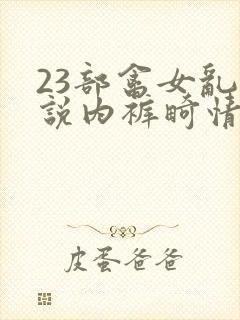 23部畲女乱
說内裤畸情
皮蛋爸爸